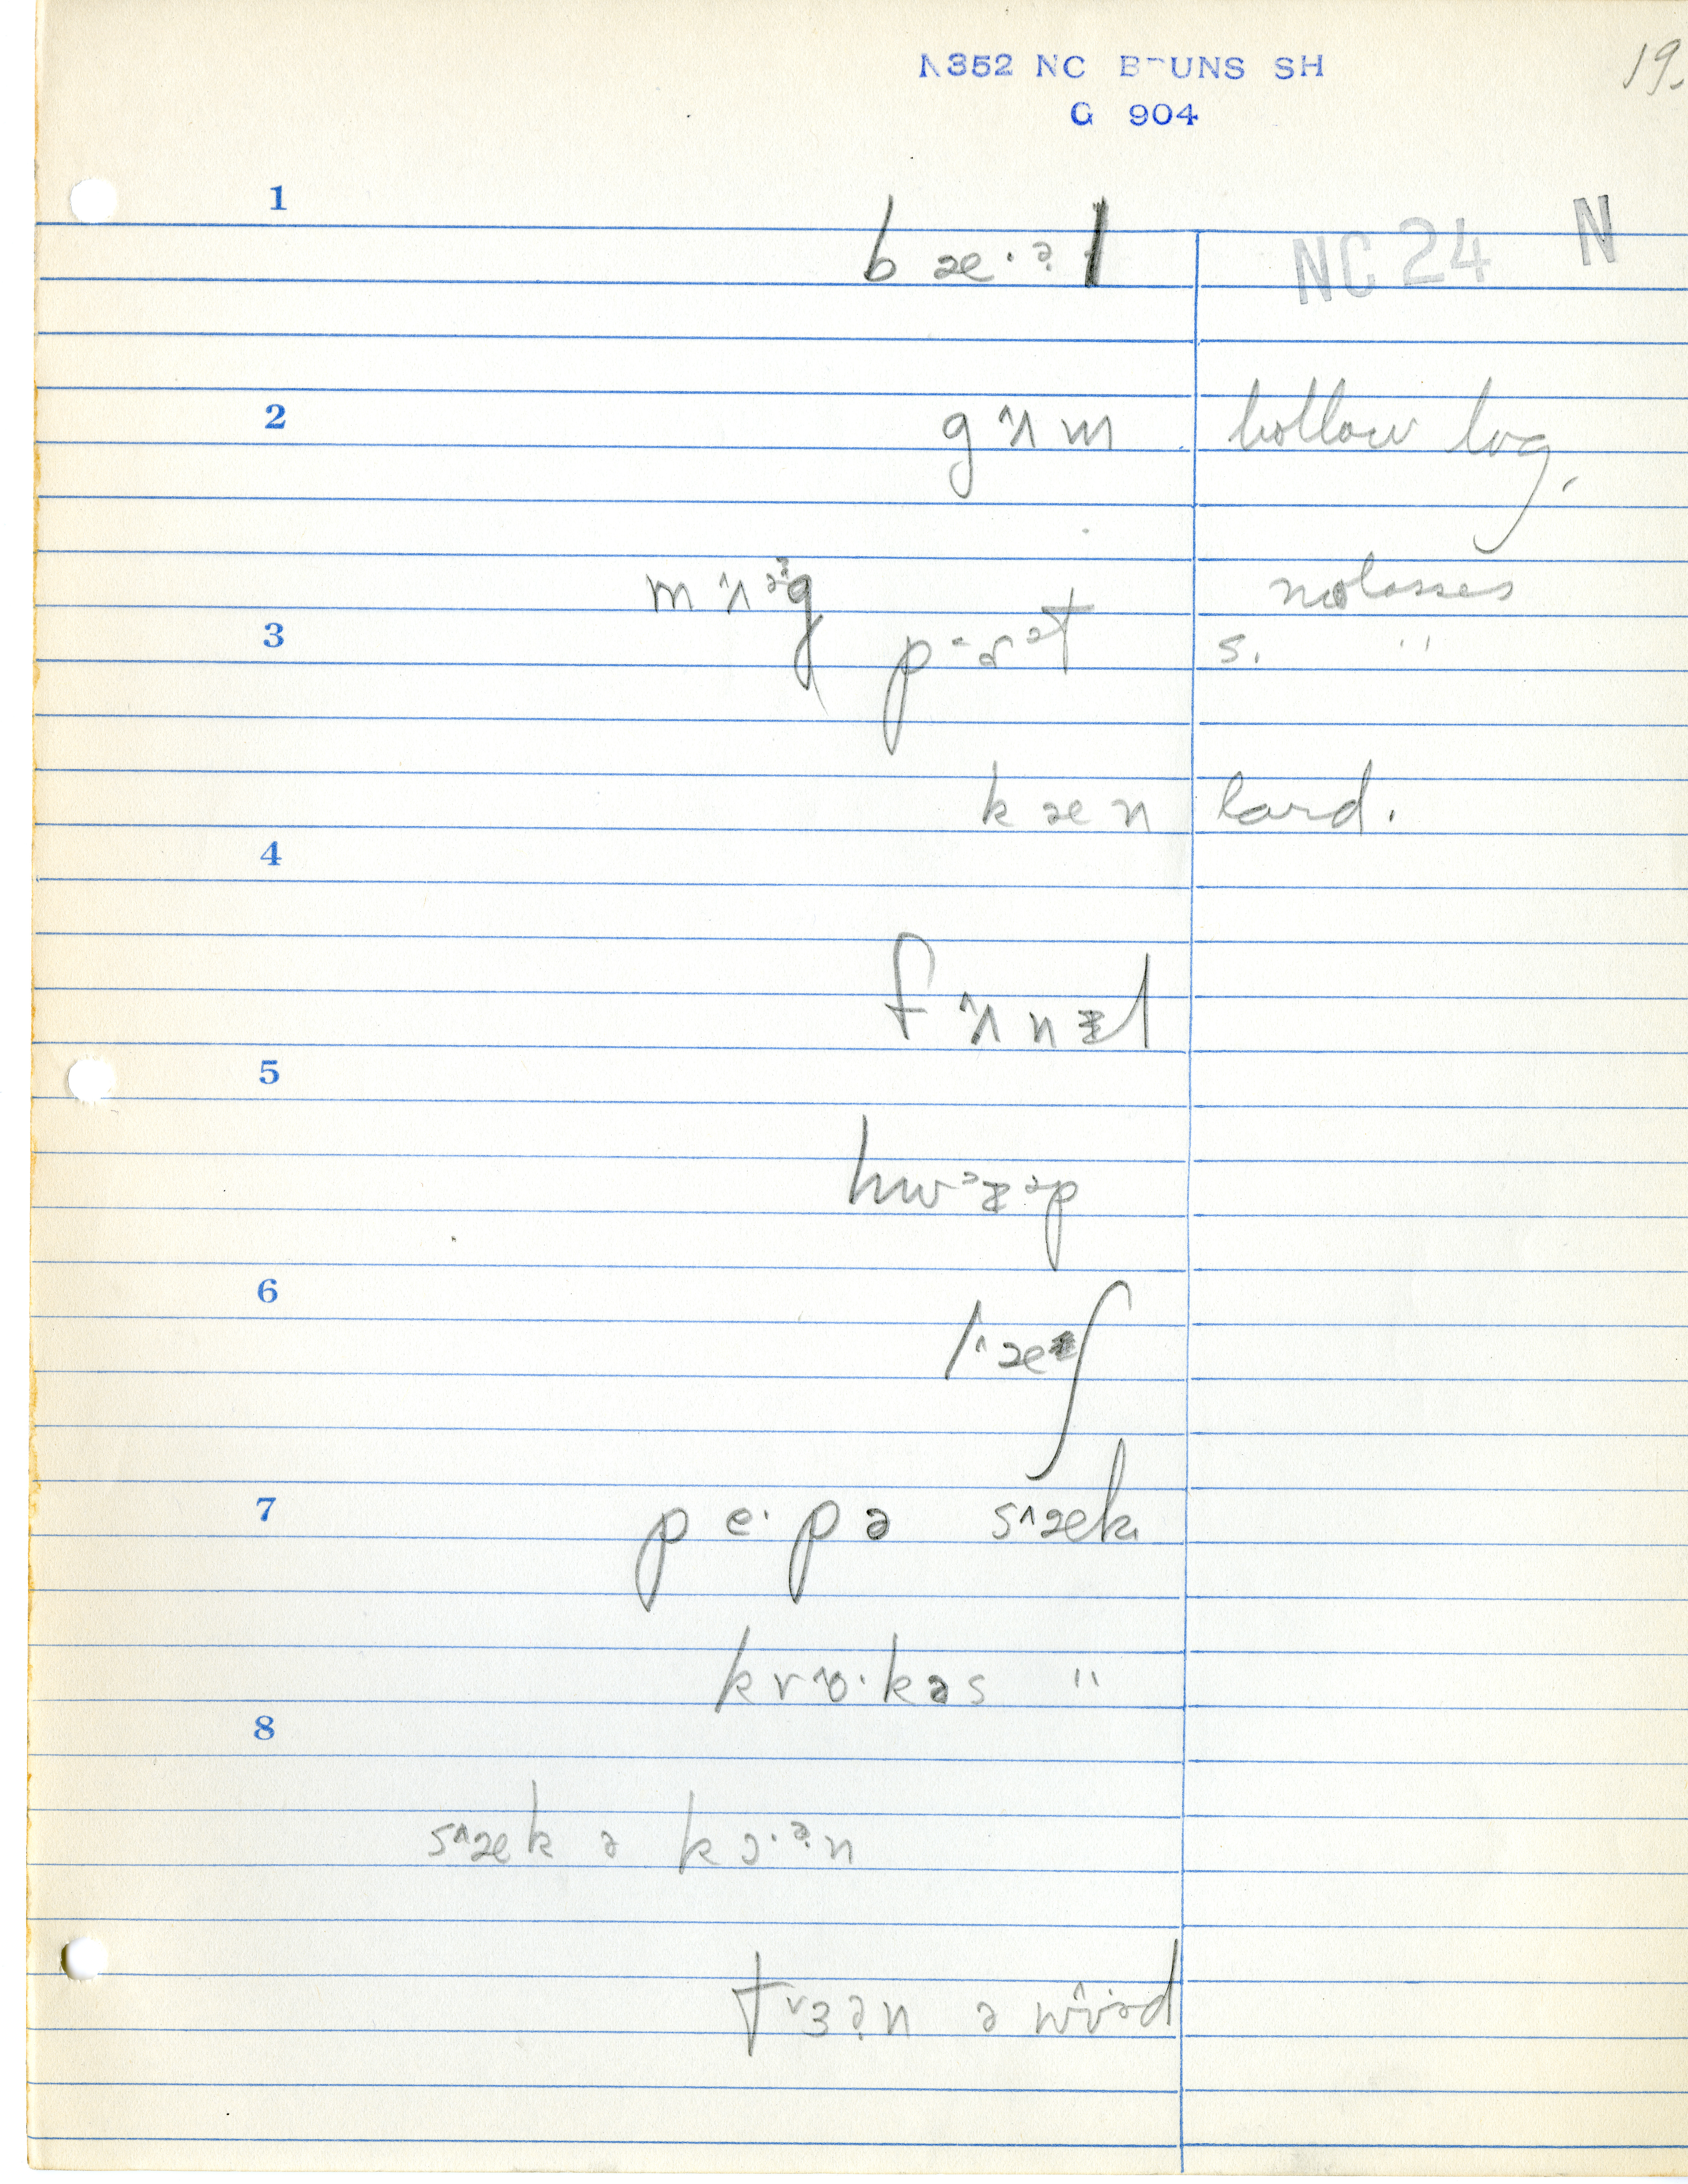 N352 NC BRUNS SH
19.
G 904
1
bæ·ə̣l
NC 24 N
2
g˄ʌm hollow log.
m˄ʌᵊg molasses
3
s. "
kæn lard.
4
f˄ʌnəl
5
6
l˄æʃ
7
pe·pə s˄æk
kr˄o·kəs "
8
s˄æk ə kɔ·ə̣n
t˅ɜə̣n ə wʊ·əd